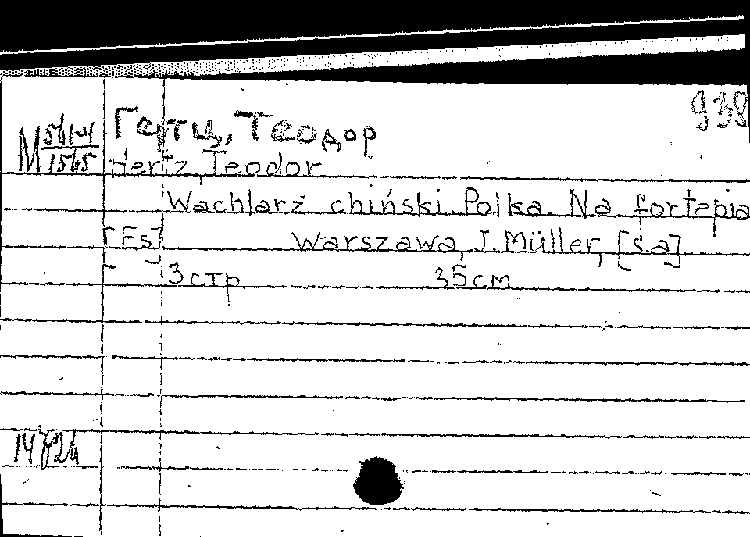 938
Герц, Теодор
M 561-4/1565
Hertz, Teodor
Wachlarz chiński. Polka. Na fortepia
[Es] Warszawa, J. Müller, [s.a]
3 стр 35 см